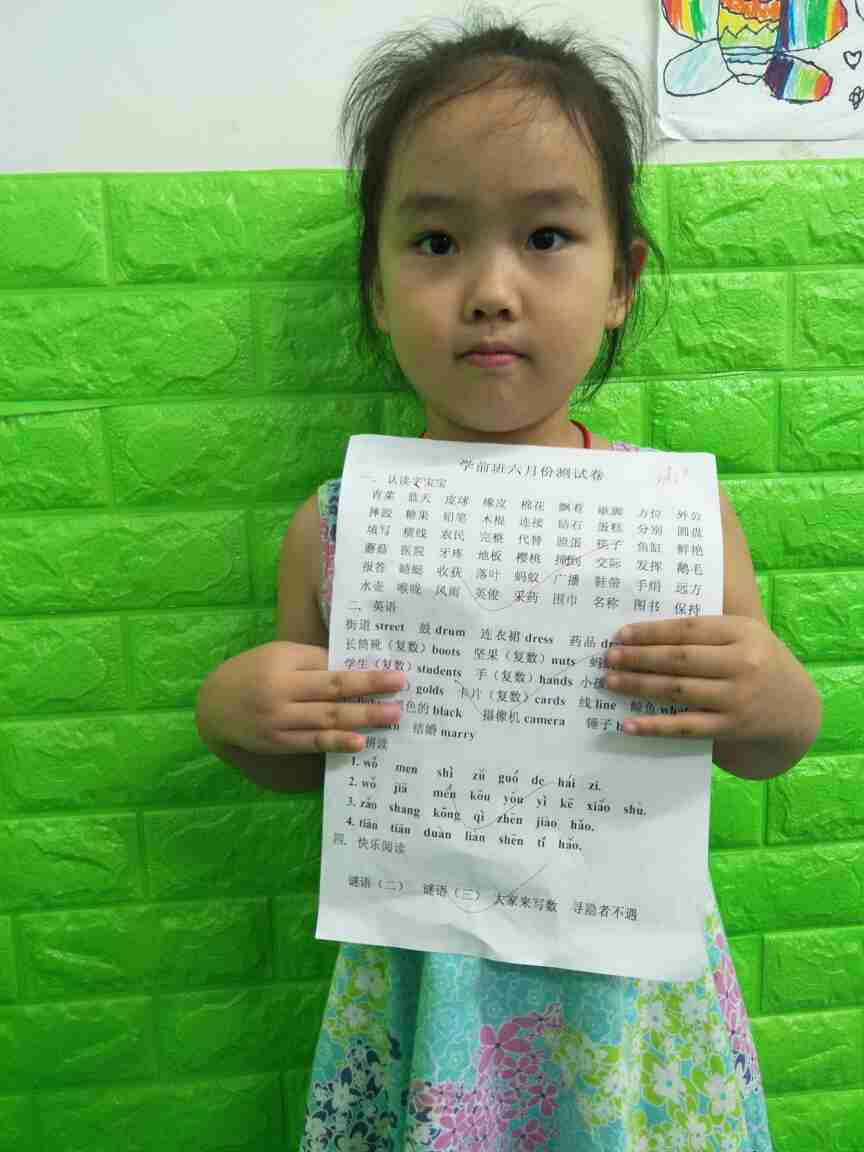 学前班六月份测试卷
一、认读字宝宝
青菜 蓝天 皮球 橡皮 棉花 飘着 歇脚 方位 外公
摔跤 糖果 铅笔 木棍 连接 钻石 蛋糕 分别 圆盘
填写 横线 农民 完整 代替 脸蛋 筷子 鱼缸 鲜艳
蘑菇 医院 牙疼 地板 樱桃 撞倒 交际 发挥 鹅毛
报答 蜻蜓 收获 落叶 蚂蚁 广播 鞋带 手绢 远方
水壶 喉咙 风雨 英俊 采药 围巾 名称 图书 保持
二、英语
街道 street 鼓 drum 连衣裙 dress 药品
长筒靴（复数）boots 坚果（复数）nuts
学生（复数）students 手（复数）hands 小孩
golds 卡片（复数）cards 线 line 鲸鱼
色的 black 摄像机 camera 锤子
结婚 marry
拼读
1. wǒ men shì zǔ guó de hái zi.
2. wǒ jiā mén kǒu yǒu yì kē xiǎo shù.
3. zǎo shang kōng qì zhēn jiào hǎo.
4. tiān tiān duàn liàn shēn tǐ hǎo.
四、快乐阅读
谜语（二） 谜语（三） 大家来写数 寻隐者不遇